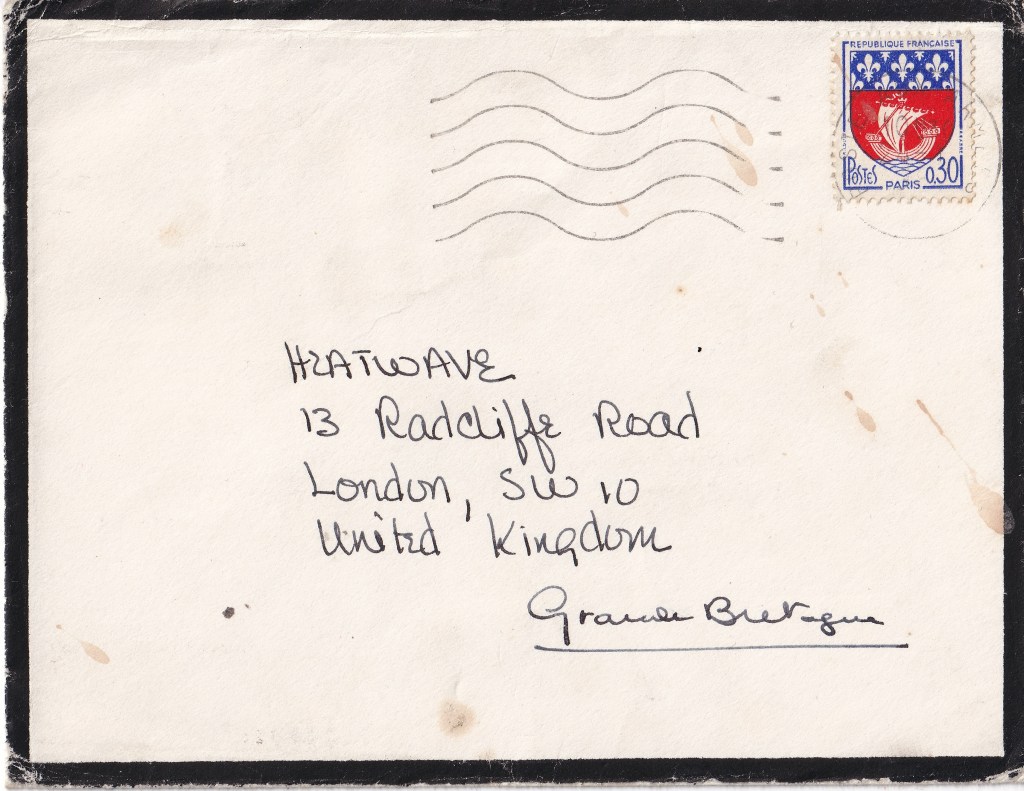 REPUBLIQUE FRANCAISE
POSTES
0,30
PARIS
HEATWAVE
13 Radcliffe Road
London, SW 10
United Kingdom
Grande Bretagne